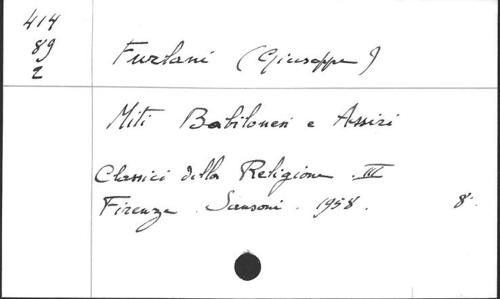 414
89
2
Furlani (Giuseppe)
Miti Babilonesi e Assiri
Classici della Religione. III
Firenze. Sansoni. 1958. 8°